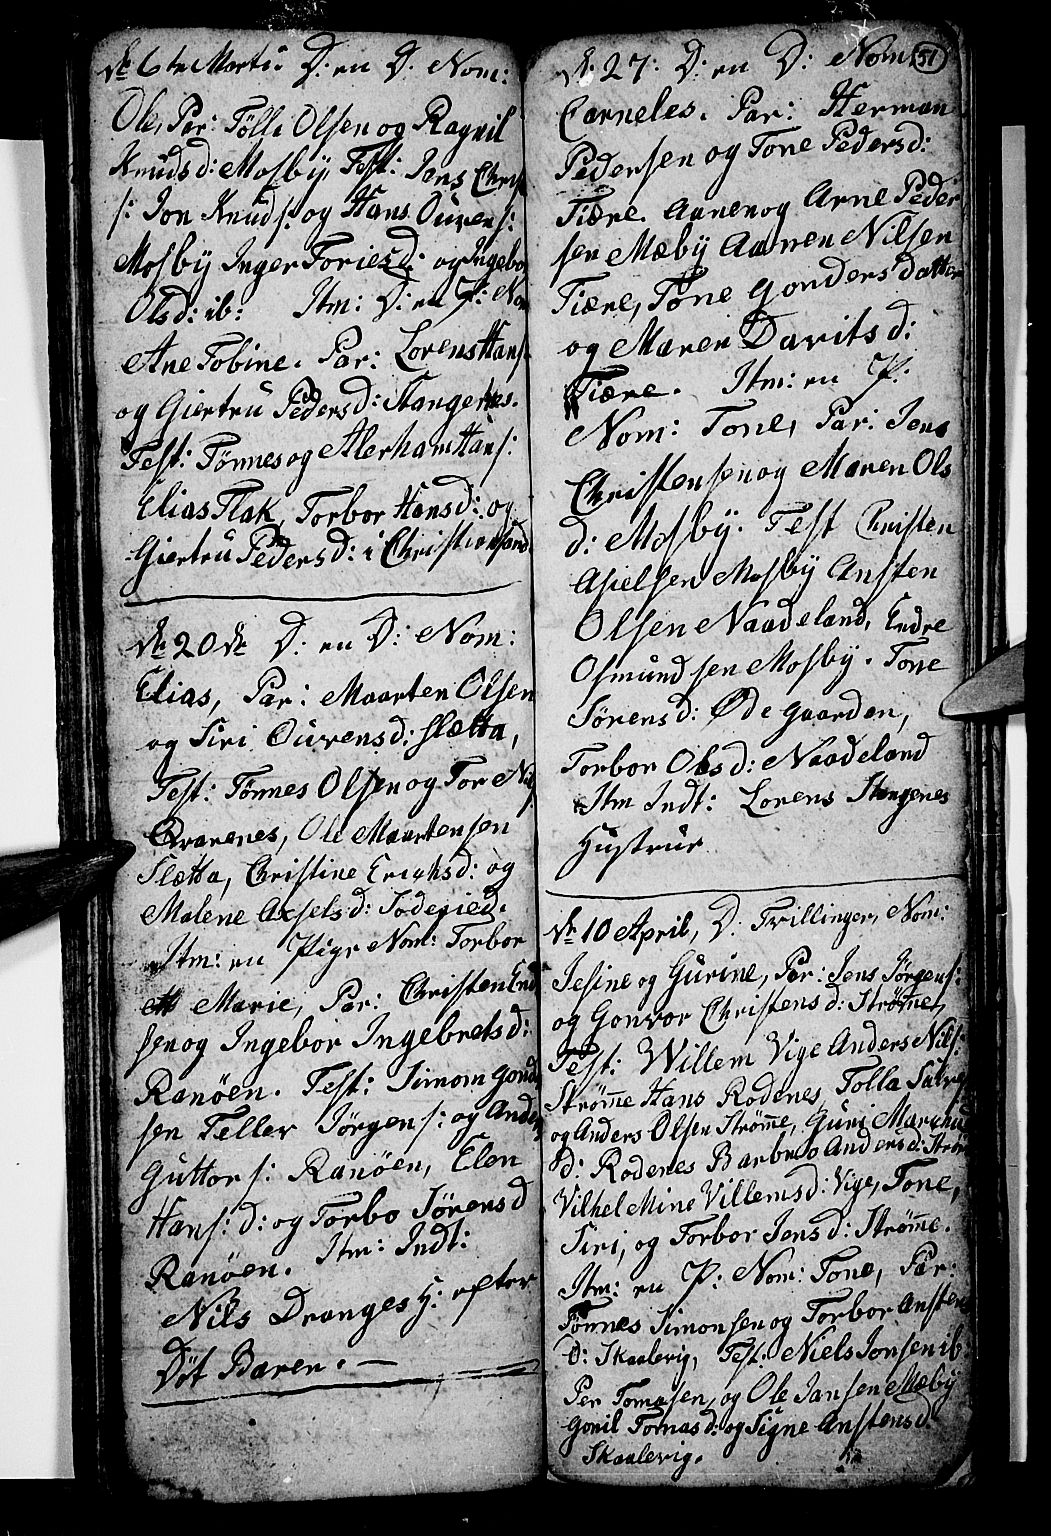 d: 6te Marti: D: en D: Nom:
Ole, Par: Tølli Olsen og Ragnil
Knudsd: Mosby, Test: Jens Christ
s: Jon Knuds: og Hans Ouvens:
Mosby Inger Toriesd: og Ingebor
Olsd: ib: Itm: D: en P: Nom
Ane Tobine. Par: Lorens Hans:
og Giertru Pedersd: Stangenes.
Test: Tønnes og Alerham Hans:
Elias Flak, Torbor Hansd: og
Giertru Pedersd: i Christiansand
d: 20de D: en D: Nom:
Elias, Par: Maarten Olsen
og Siri Ouvensd: Slætta,
Test: Tønnes Olsen og Tore Nils
Qvarenes, Ole Maartensen
Slætta, Christine Erichsd: og
Malene Axselsd: Jodegied.
Itm: en Pige Nom: Torbor
Marie, Par: Christen End
sen og Ingebor Ingebretsd:
Ranöen. Test: Simom Gond
sen Teller Jörgens: og Anders
Guttors: Ranöen, Elen
Hans: d: og Torbo Sörensd
Ranöen. Itm: Indt:
Nils Dranges H: efter
Döt Baren. —
51
d: 27: D: en D: Nom:
Carneles. Par: Herman
Pedersen og Tone Pedersd:
Tiære. Aanen og Arne Peder
sen Mæby Aanen Nilsen
Tiære, Tone Gondersdatter
og Maren Davitsd:
Tiære. Itm: en P:
Nom: Tone, Par: Jens
Christensen og Maren Ols
d: Mosby. Test Christen
Asielsen Mosby Ansten
Olsen Naadeland, Endre
Osmundsen Mosby. Tone
Sörensd: Ødegaarden,
Torbor Olsd: Naadeland
Itm Indt: Lorens Stangenes
Hustrue
d: 10 April, D. Tvillinger, Nom:
Jesine og Gurine, Par: Jens Jørgens:
og Gonvor Christensd: Strømme,
Test: Willem Vige Anders Nils:
Strømme Hans Rodenes, Tolla Salve
og Anders Olsen Strømme, Guri Marchus
d: Rodenes Barbro Andersd: Strøm
VilhelMine Villemsd: Vige, Tone,
Siri, og Torbor Jensd: Strømme.
Itm: en P: Nom: Tone, Par:
Tønnes Simonsen og Torbor Ansten
d: Skaalevig, Test: Niels Jonsen ib:
Per Tomasen, og Ole Jansen Mæby
Gonil Tomasd: og Signe Anstensd
Skaalevig.